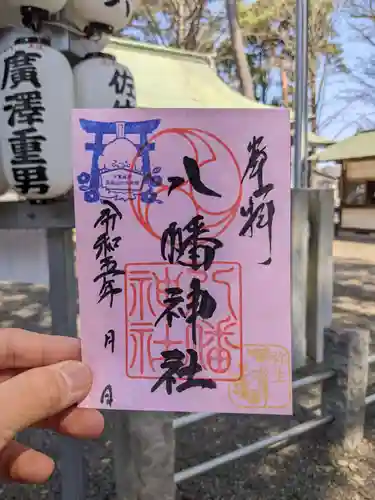 廣澤重男
佐
奉拝
八幡神社
八幡
神社
令和五年 月 日